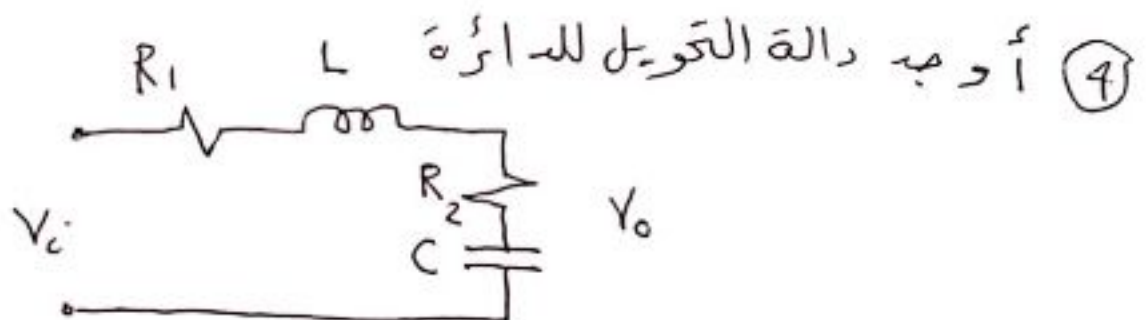 ④ أوجد دالة التحويل للدائرة
R1 L
R2
Vi Vo
C